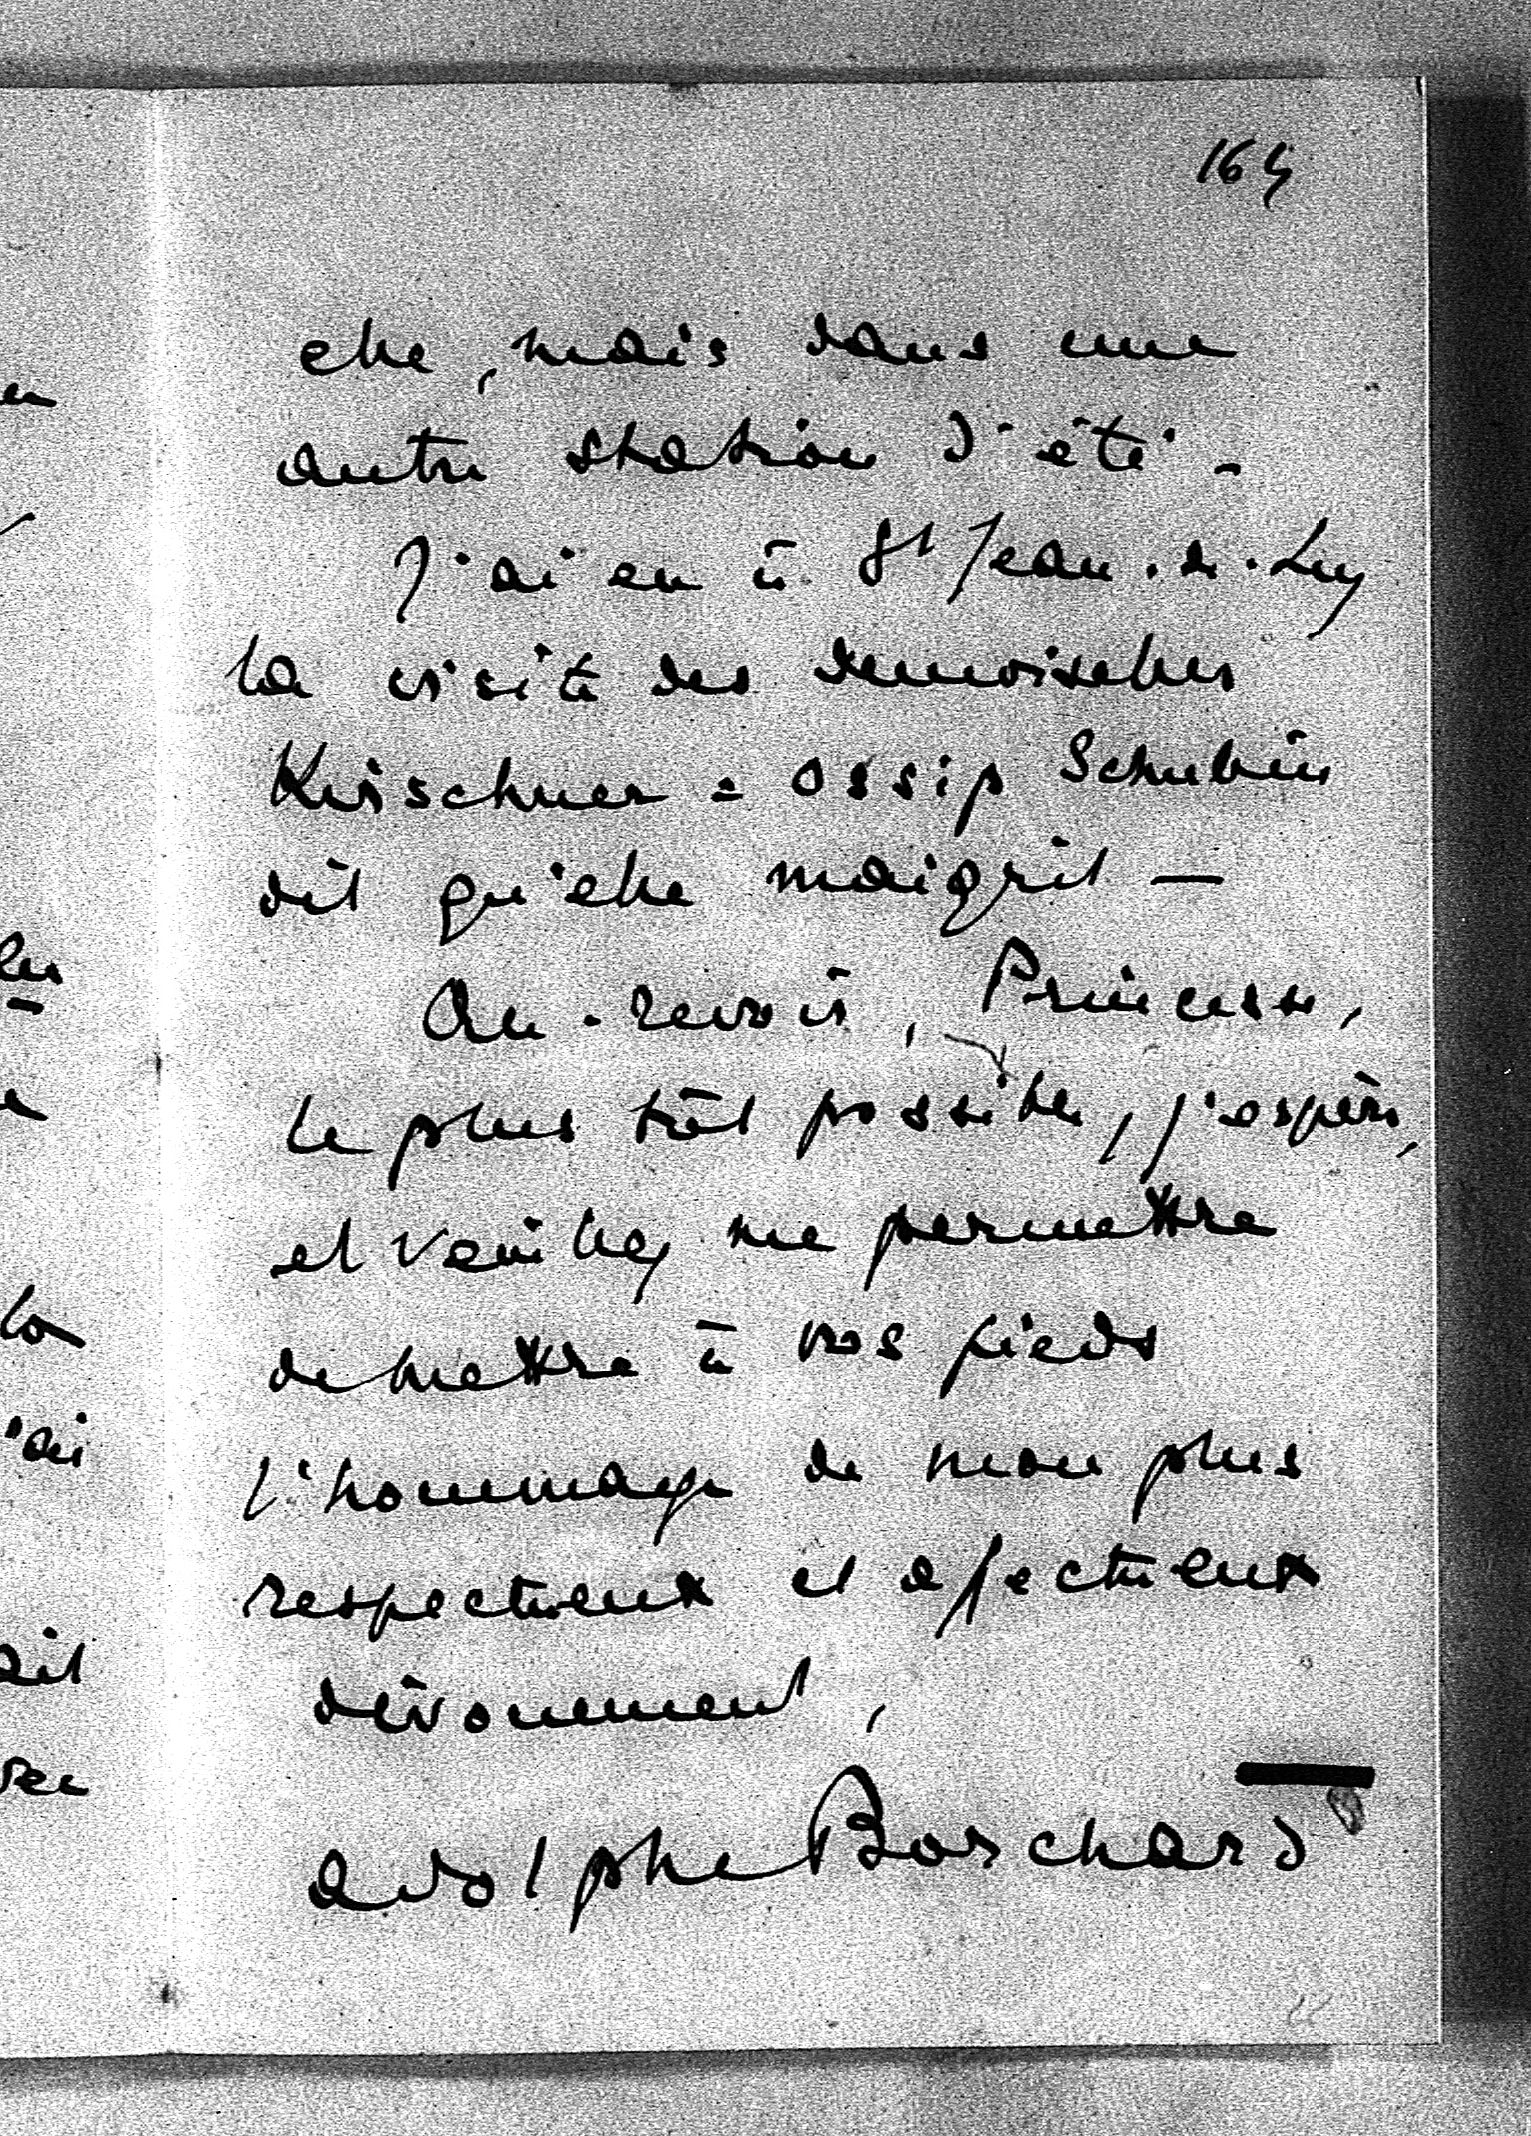 164
elle, mais dans une
autre station d'été -
J'ai eu à St Jean-de-Luz
la visite des demoiselles
Kirschner = Ossip Schubin
dit qu'elle maigrit —
Au-revoir, Princesse,
le plus tôt possible, j'espère,
et veuillez me permettre
de mettre à vos pieds
l'hommage de mon plus
respectueux et affectueux
dévouement,
Adolphe Borchard